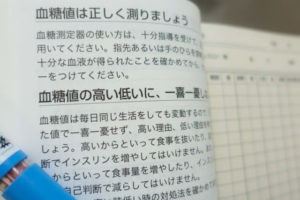 血糖値は正しく測りましょう
血糖測定器の使い方は、十分指導を受けて、
用いてください。指先あるいは手のひらを
十分な血液が得られたことを確かめてから、
ーをつけてください。
血糖値の高い低いに、一喜一憂し
血糖値は毎日同じ生活をしても変動する
た値で一喜一憂せず、高い理由、低い理由
しょう。高いからといって食事を抜いたり、
断でインスリンを増やしてはいけません。
いからといって食事量を増やしたり、イン
自己判断で減らしてはいけません。
低い時の対処法を